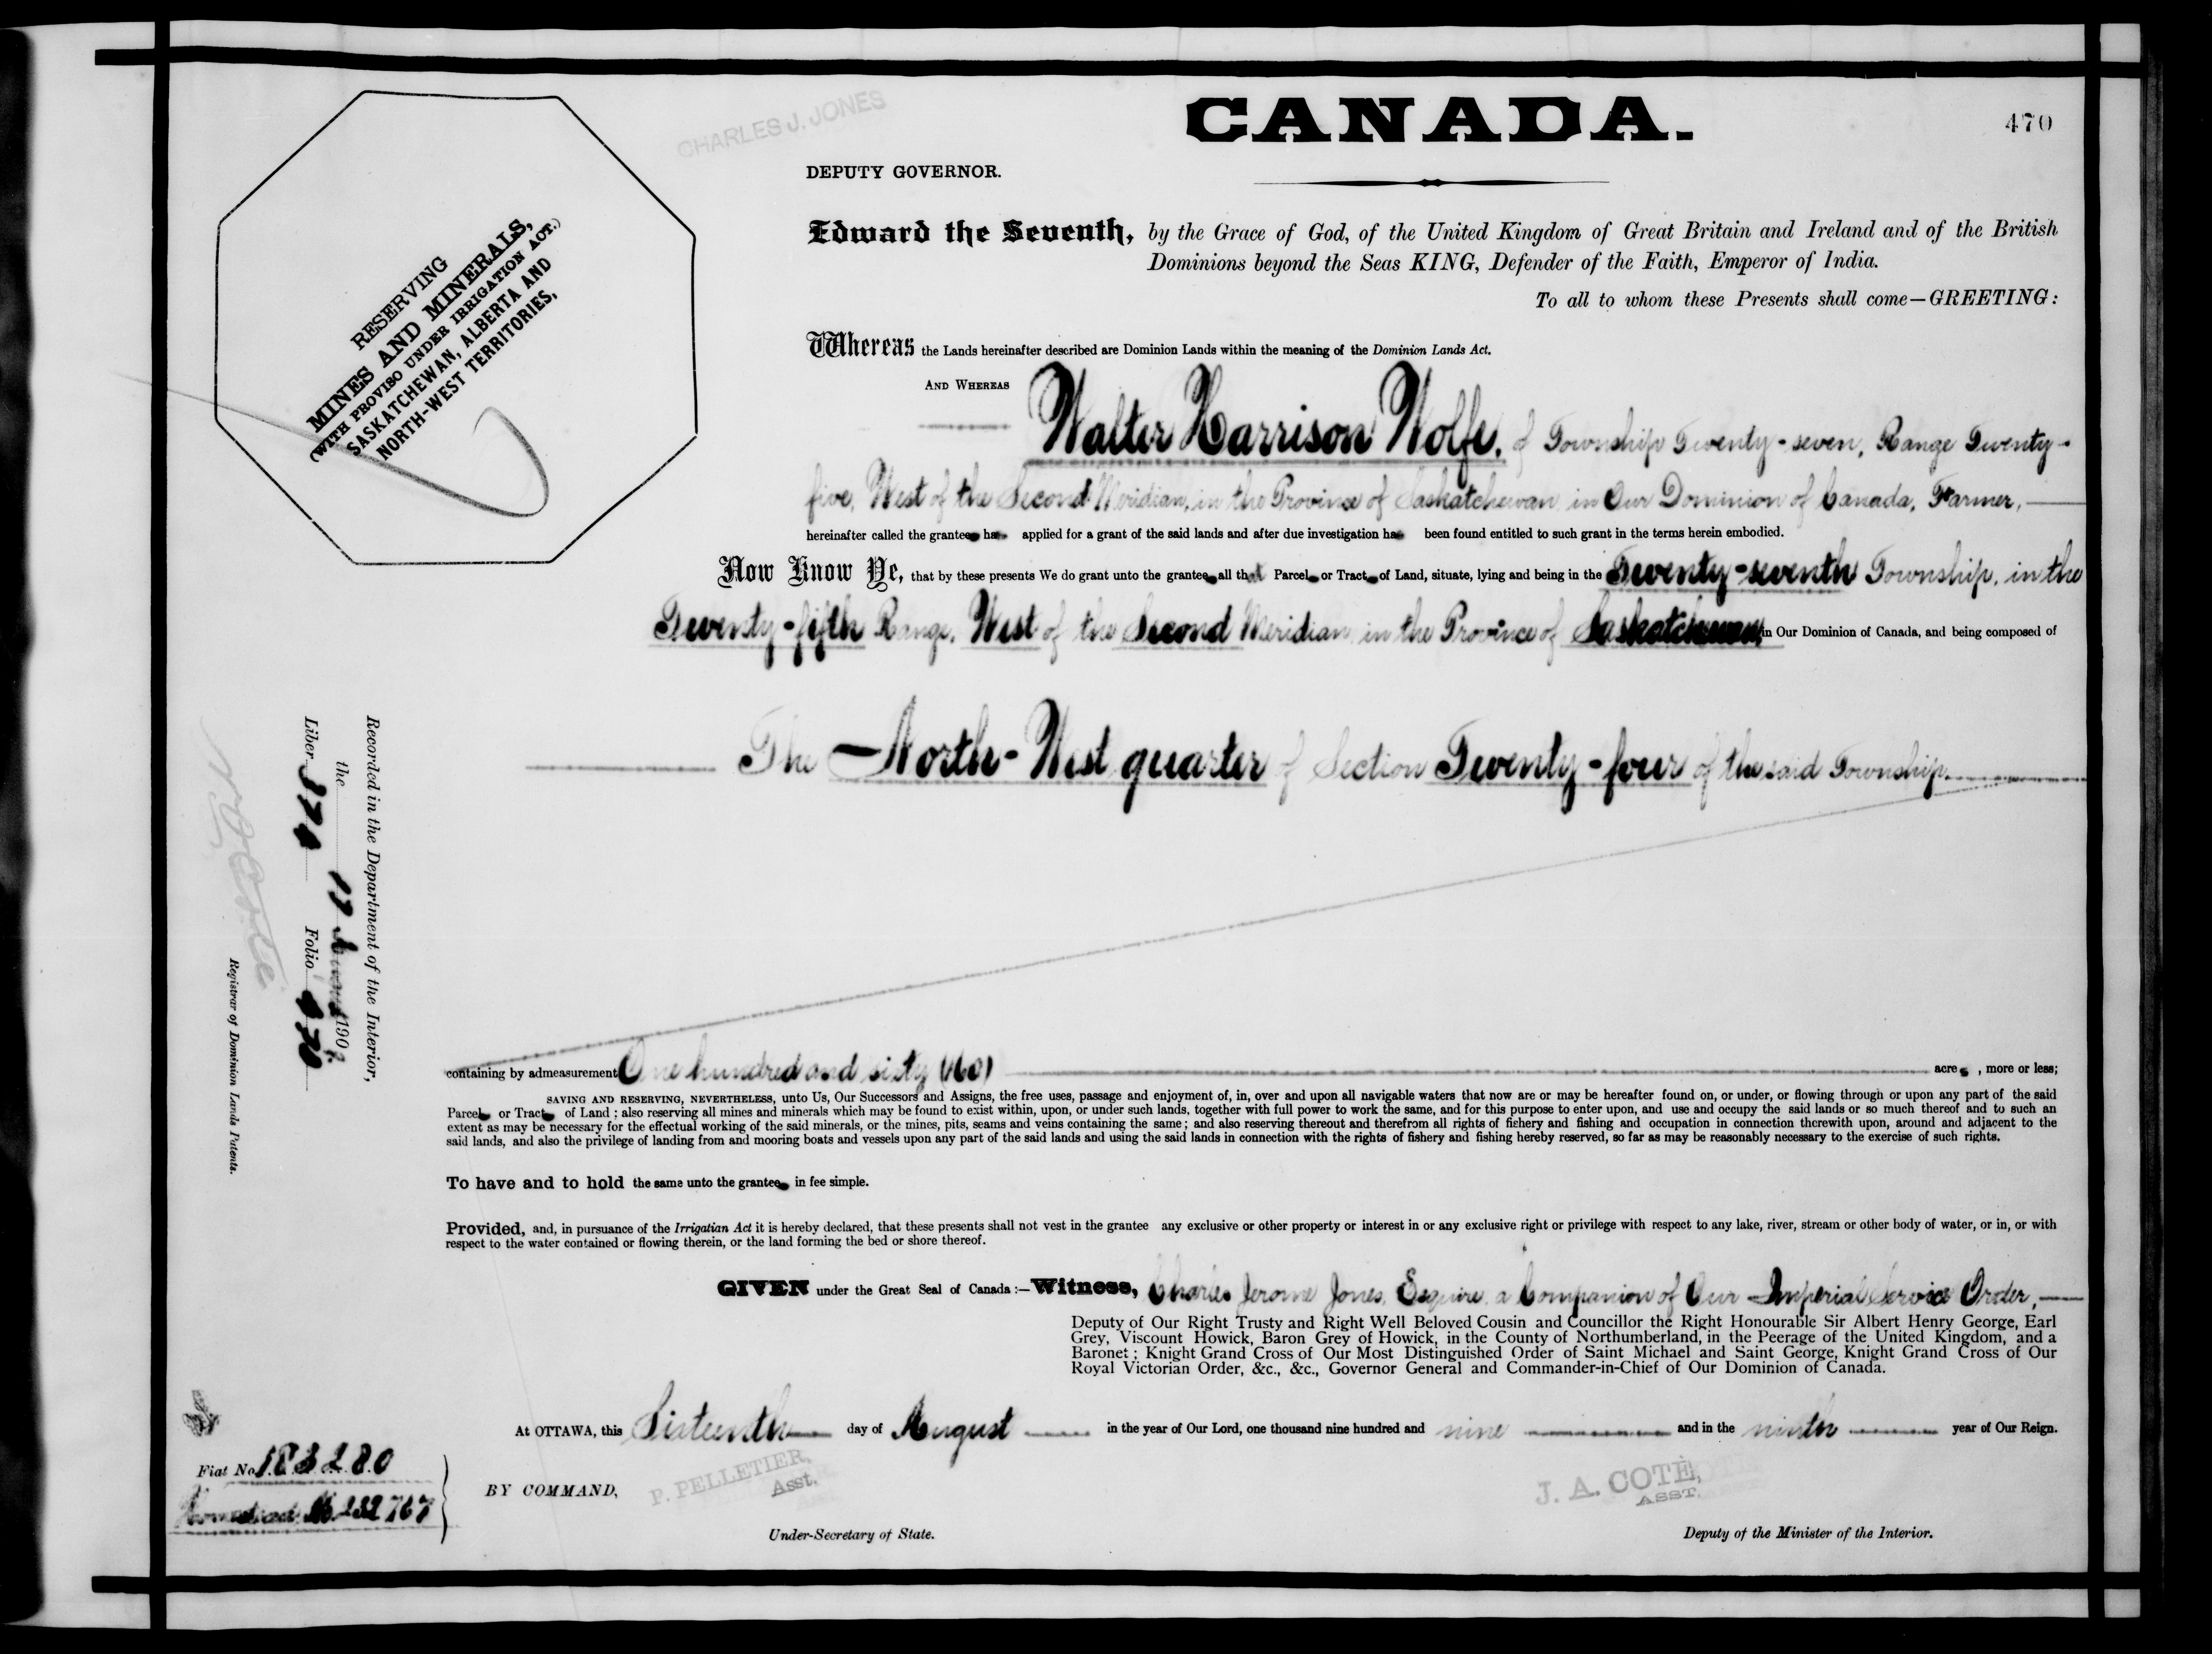 CANADA.
470
CHARLES J. JONES
DEPUTY GOVERNOR.
RESERVING
MINES AND MINERALS,
(WITH PROVISO UNDER IRRIGATION ACT.)
SASKATCHEWAN, ALBERTA AND
NORTH-WEST TERRITORIES,
Edward the Seventh, by the Grace of God, of the United Kingdom of Great Britain and Ireland and of the British
Dominions beyond the Seas KING, Defender of the Faith, Emperor of India.
To all to whom these Presents shall come—GREETING:
Whereas the Lands hereinafter described are Dominion Lands within the meaning of the Dominion Lands Act.
AND WHEREAS
Walter Harrison Wolfe, of Township Twenty-seven, Range Twenty-
five, West of the Second Meridian, in the Province of Saskatchewan in Our Dominion of Canada, Farmer,
hereinafter called the grantee ha applied for a grant of the said lands and after due investigation ha been found entitled to such grant in the terms herein embodied.
Now Know Ye, that by these presents We do grant unto the grantee all that Parcel or Tract of Land, situate, lying and being in the Twenty-seventh Township, in the
Twenty-fifth Range, West of the Second Meridian, in the Province of Saskatchewan in Our Dominion of Canada, and being composed of
The North-West quarter of Section Twenty-four of the said Township.
containing by admeasurement One hundred and sixty (160) acres, more or less;
SAVING AND RESERVING, NEVERTHELESS, unto Us, Our Successors and Assigns, the free uses, passage and enjoyment of, in, over and upon all navigable waters that now are or may be hereafter found on, or under, or flowing through or upon any part of the said
Parcel or Tract of Land; also reserving all mines and minerals which may be found to exist within, upon, or under such lands, together with full power to work the same, and for this purpose to enter upon, and use and occupy the said lands or so much thereof and to such an
extent as may be necessary for the effectual working of the said minerals, or the mines, pits, seams and veins containing the same; and also reserving thereout and therefrom all rights of fishery and fishing and occupation in connection therewith upon, around and adjacent to the
said lands, and also the privilege of landing from and mooring boats and vessels upon any part of the said lands and using the said lands in connection with the rights of fishery and fishing hereby reserved, so far as may be reasonably necessary to the exercise of such rights.
To have and to hold the same unto the grantee in fee simple.
Provided, and, in pursuance of the Irrigatian Act it is hereby declared, that these presents shall not vest in the grantee any exclusive or other property or interest in or any exclusive right or privilege with respect to any lake, river, stream or other body of water, or in, or with
respect to the water contained or flowing therein, or the land forming the bed or shore thereof.
GIVEN under the Great Seal of Canada:—Witness, Charles Jerome Jones, Esquire, a Companion of Our Imperial Service Order,
Deputy of Our Right Trusty and Right Well Beloved Cousin and Councillor the Right Honourable Sir Albert Henry George, Earl
Grey, Viscount Howick, Baron Grey of Howick, in the County of Northumberland, in the Peerage of the United Kingdom, and a
Baronet; Knight Grand Cross of Our Most Distinguished Order of Saint Michael and Saint George, Knight Grand Cross of Our
Royal Victorian Order, &c., &c., Governor General and Commander-in-Chief of Our Dominion of Canada.
At OTTAWA, this Sixteenth day of August in the year of Our Lord, one thousand nine hundred and nine and in the ninth year of Our Reign.
BY COMMAND,
P. PELLETIER,
Asst.
Under-Secretary of State.
J. A. COTÈ,
ASST.
Deputy of the Minister of the Interior.
Recorded in the Department of the Interior,
the 190
Liber Folio 470
Registrar of Dominion Lands Patents.
Fiat No. 183280
Homestead